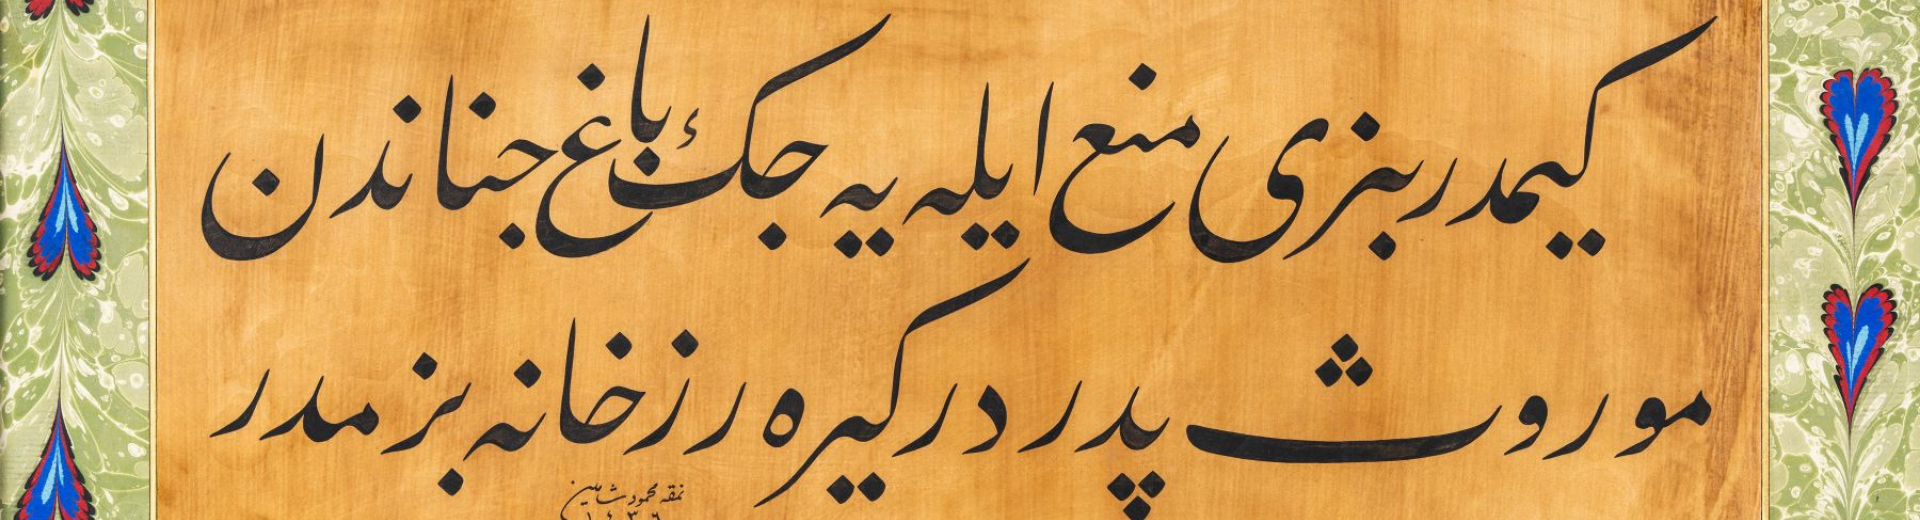 كیمدر بزی منع ایله یه جك باغ جناندن
موروث پدردر كیره رز خانه بزمدر
نمقه محمود شاهين
١٤٣٦